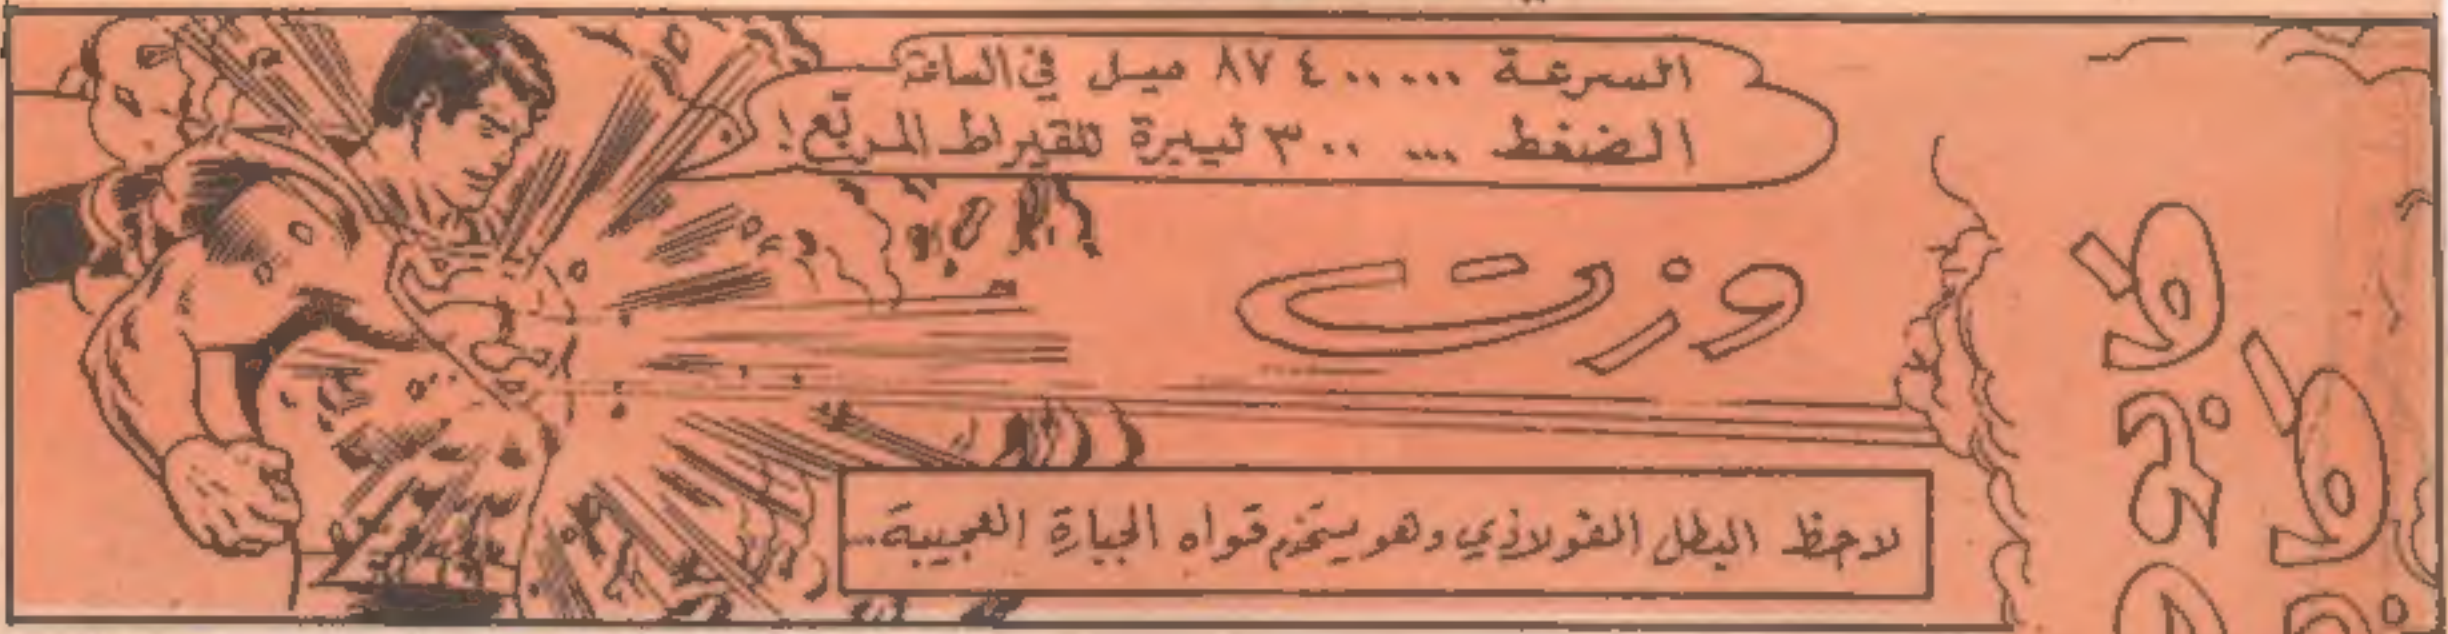 السرعة ٨٧٤٠٠٠٠٠ ميل في الساعة
الضغط ٣٠٠٠٠٠ ليبرة للقيراط المربّع!
وزت
لاحظ البطل الفولاذي وهو يستخدم قواه الجبارة العجيبة...